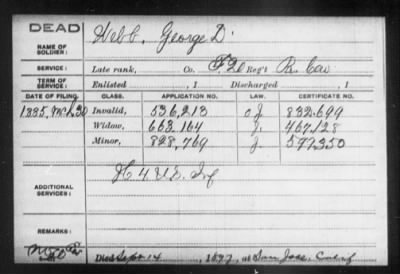 DEAD
NAME OF SOLDIER:
Webb, George D.
SERVICE:
Late rank, Co. F, 20 Reg't Pa. Cav
TERM OF SERVICE:
Enlisted , 1 Discharged , 1
DATE OF FILING. CLASS. APPLICATION NO. LAW. CERTIFICATE NO.
1885, Invalid, 536,213 832,699
Widow, 663,164 467,128
Minor, 828,769 577,350
ADDITIONAL SERVICES:
H 4 U.S. Inf
REMARKS:
Died Sept 14, 1897, at San Jose,